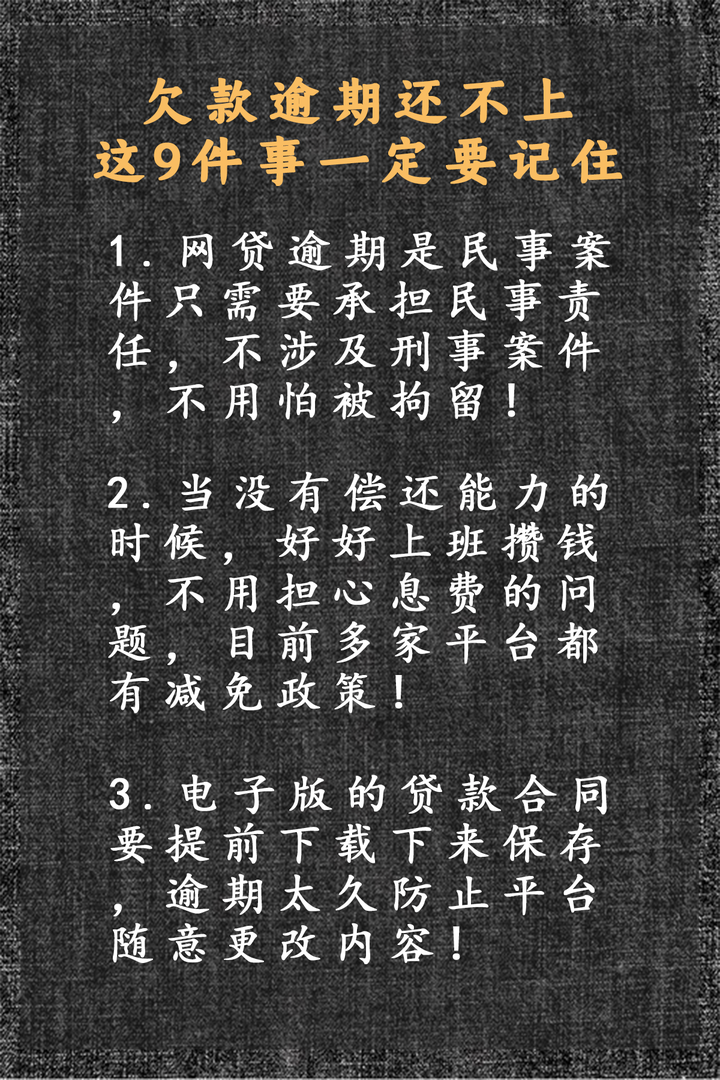 欠款逾期还不上
这9件事一定要记住
1.网贷逾期是民事案
件只需要承担民事责
任，不涉及刑事案件
，不用怕被拘留！
2.当没有偿还能力的
时候，好好上班攒钱
，不用担心息费的问
题，目前多家平台都
有减免政策！
3.电子版的贷款合同
要提前下载下来保存
，逾期太久防止平台
随意更改内容！